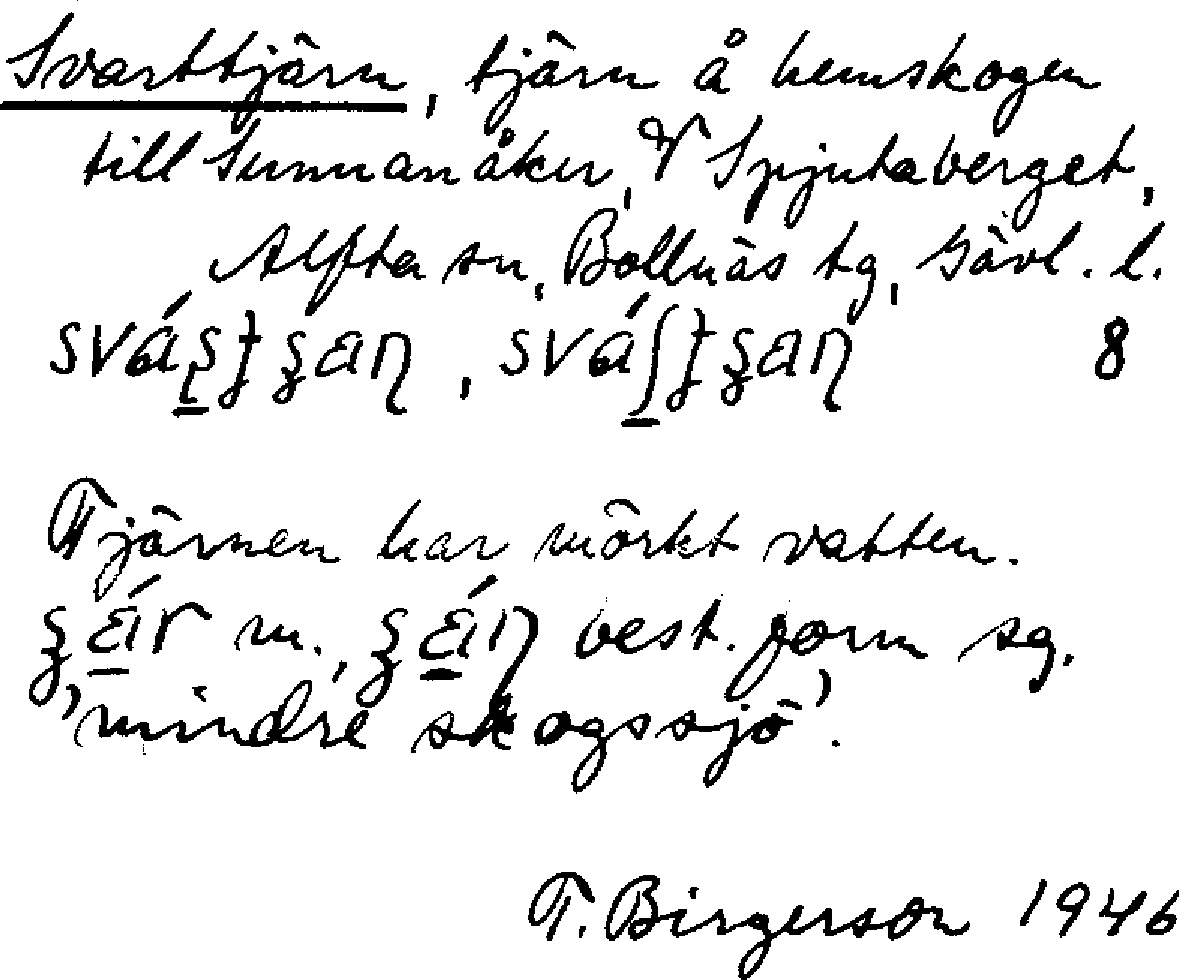 Svarttjärn, tjärn å hemskogen
till Sunnanåker, V Spjutaberget,
Alfta sn, Bollnäs tg, Gävl. l.
8
Tjärnen har mörkt vatten.
m., best. form sg.
'mindre skogssjö'.
T. Birgerson 1946